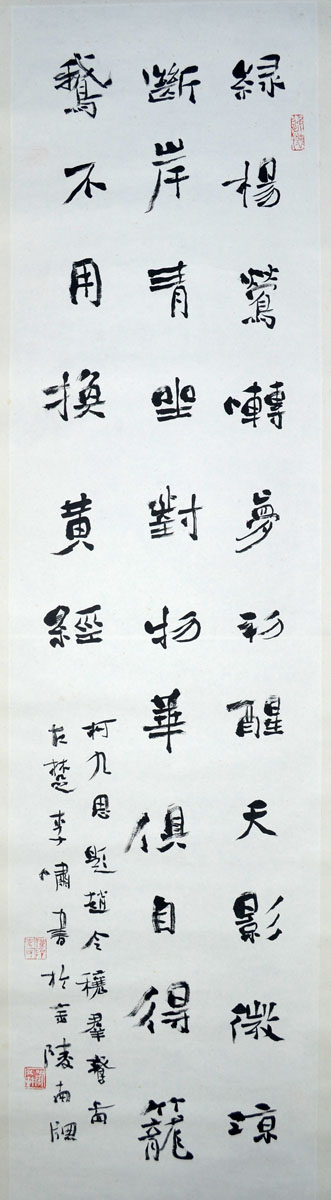 緑楊鶯囀夢初醒天影微涼
斷岸清坐對物華俱自得籠
鵝不用換黄經
柯九思題趙令穰羣鵞圖
古楚李嘯書於金陵南牕